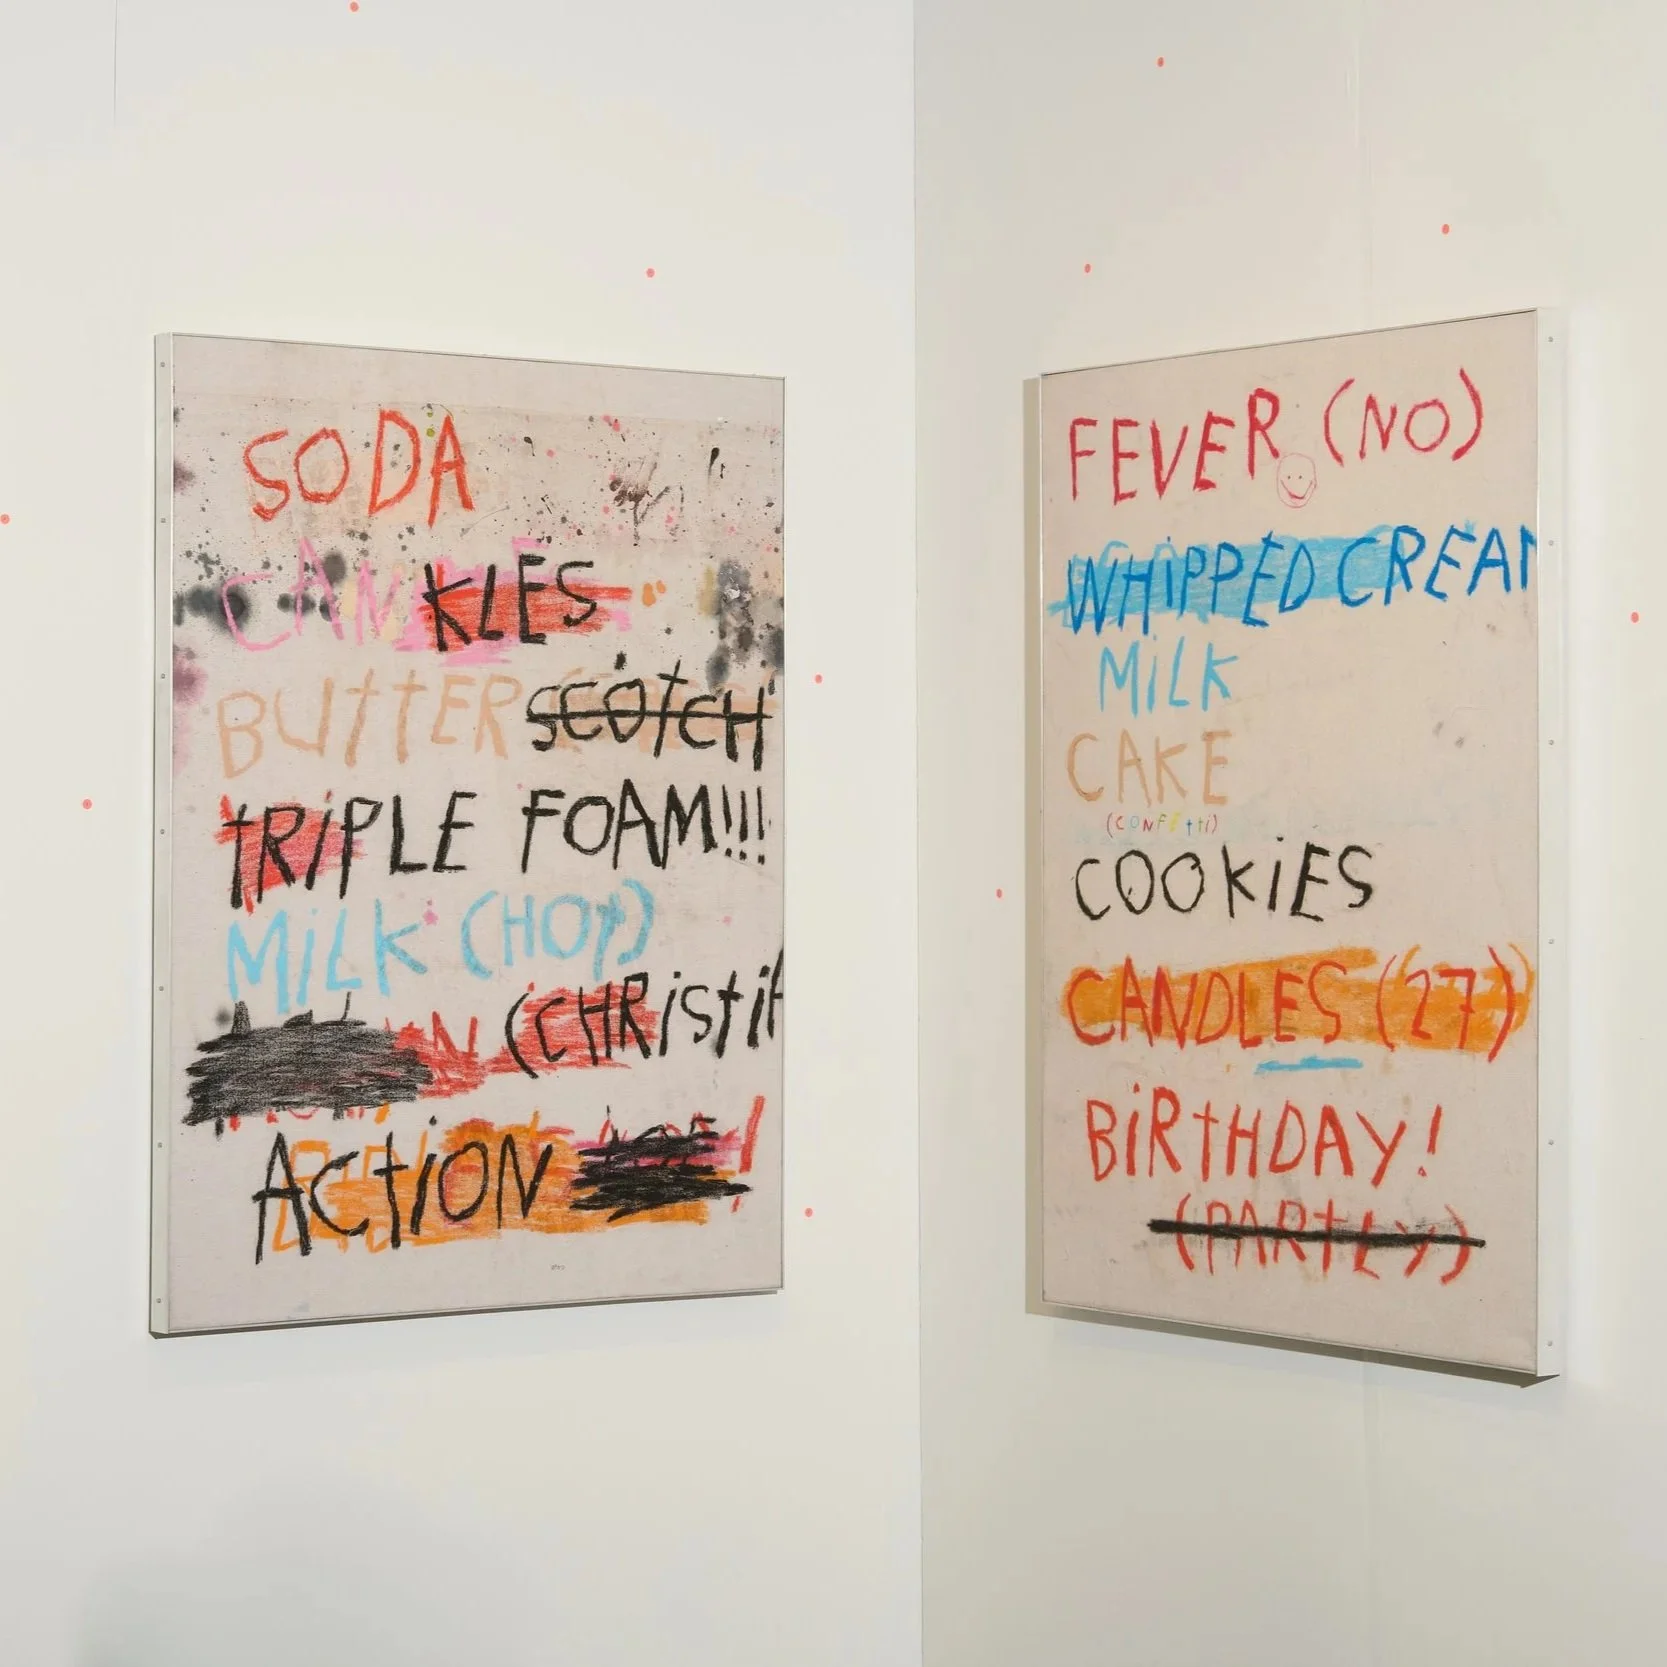 SODA
CANKLES
BUTTERSCOTCH
TRiPLE FOAM!!!
MiLK (HOT)
(CHRiSti
ACtiON
FEVER (NO)
WHiPPED CREAM
MiLK
CAKE
(CONFEtti)
COOKiES
CANDLES (27)
BiRtHDAY!
(PARtLY)